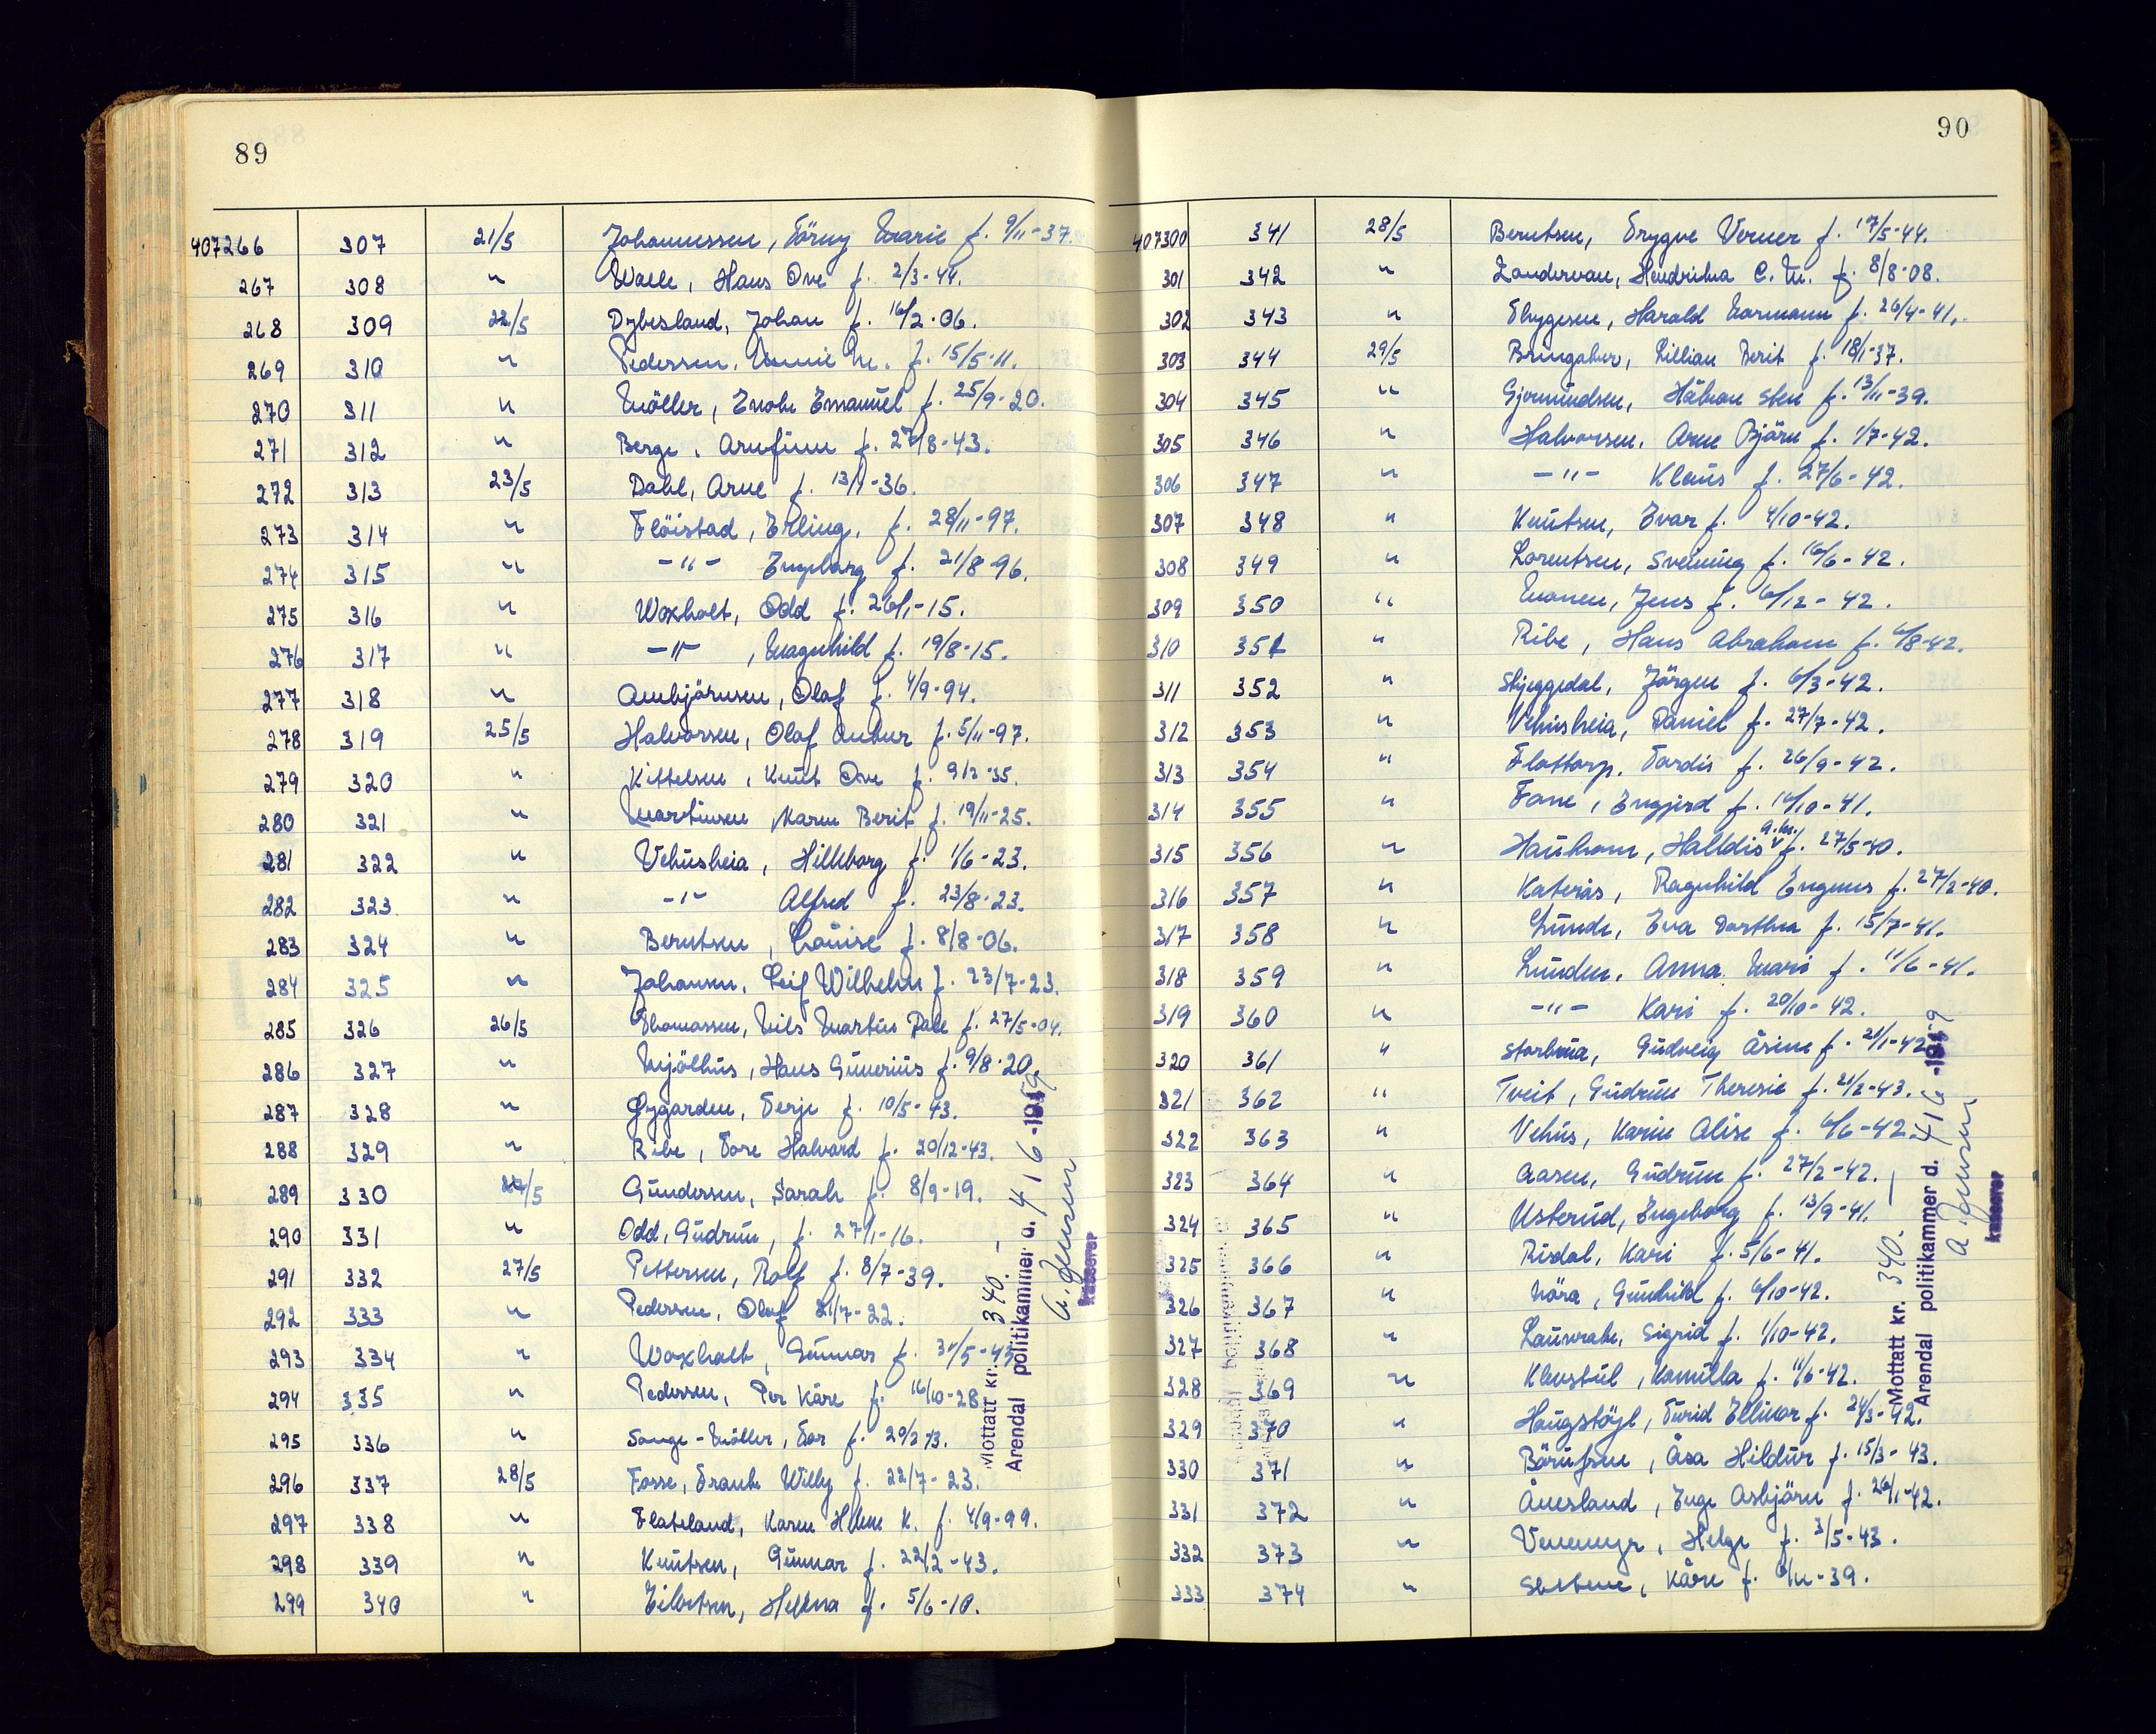 89
407266 307 21/5 Johannessen, Törny Marie f. 9/11-37.
267 308 " Walle, Hans Ove f. 2/3-44.
268 309 22/5 Dybesland, Johan f. 16/2-06.
269 310 " Pedersen, M. f. 15/5-11.
270 311 " Möller, Enok Emanuel f. 25/9-20.
271 312 " Berge, Arnfinn f. 27/8-43.
272 313 23/5 Dahl, Arne f. 13/1-36.
273 314 " Flöistad, Erling, f. 28/11-97.
274 315 " -"- Ingeborg f. 21/8-96.
275 316 " Woxholt, Odd f. 26/1-15.
276 317 " -"-, Magnhild f. 19/8-15.
277 318 " Ambjörnsen, Olaf f. 4/9-94.
278 319 25/5 Halvorsen, Olaf Anker f. 5/11-97.
279 320 " Kittelsen, Knut Ove f. 9/2-35.
280 321 " Martinsen, Karen Berit f. 19/11-25.
281 322 " Vehusheia, Hilleborg f. 1/6-23.
282 323 " -"- Alfred f. 23/8-23.
283 324 " Berntsen, Louise f. 8/8-06.
284 325 " Johansen, Leif Wilhelm f. 23/7-23.
285 326 26/5 Thomassen, Nils Martin Dale f. 27/5-04.
286 327 " Mjölhus, Hans Gunerius f. 9/8-20.
287 328 " Lygarden, Terje f. 10/5-43.
288 329 " Ribe, Tore Halvard f. 20/12-43.
289 330 /5 Gundersen, Sarah f. 8/9-19.
290 331 " Odd, Gudrun, f. 27/1-16.
291 332 27/5 Pettersen, Rolf f. 8/7-39.
292 333 " Pedersen, Olaf 21/7-22.
293 334 " Woxholt, Gunnar f. /5-43
294 335 " Pedersen, Per Kåre f. 16/10-28
295 336 " -Möller, Tor f.
296 337 28/5 Fosse, Frank Willy f. 22/7-23.
297 338 " Flateland, Karen Helene K. f. 4/9-99.
298 339 " Knutsen, Gunnar f. 22/2-43.
299 340 " Eilertsen, Helena f. 5/6-10.
Mottatt kr. 340.-
Arendal politikammer d. 4/6-1959
A. Jensen
kasserer
90
407300 341 28/5 Berntsen, Trygve Verner f. 17/5-44.
301 342 " Zandervan, Hendrika C. M. f. 8/8-08.
302 343 " Thygesen, Harald Normann f. 26/4-41.
303 344 29/5 Bringaker, Lillian Berit f. 18/1-37.
304 345 " Gjermundsen, Håkon Sten f. 13/11-39.
305 346 " Halvorsen, Arne Björn f. 1/7-42.
306 347 " -"- Klaus f. 27/6-42.
307 348 " Knutsen, Ivar f. 4/10-42.
308 349 " Lorentsen, Sveinung f. 16/6-42.
309 350 " Monen, Jens f. 6/12-42.
310 351 " Ribe, Hans Abraham f. 6/8-42.
311 352 " Skjeggedal, Jörgen f. 6/3-42.
312 353 " Vehusheia, Daniel f. 27/7-42.
313 354 " Flottorp, Tordis f. 26/9-42.
314 355 " Fone, Engjerd f. 16/10-41.
315 356 " Haukom, Halldis A.M. f. 27/5-40.
316 357 " Kateras, Ragnhild Ingunn f. 27/2-40.
317 358 " Lunde, Eva Dorthea f. 15/7-41.
318 359 " Lunden, Anna Mari f. 11/6-41.
319 360 " -"- Kari f. 20/10-42.
320 361 " Gudveig Åsine f. 21/1-42
321 362 " Tveit, Gudrun Theresie f. 21/2-43.
322 363 " Vehus, Karin Alise f. 6/6-42.
323 364 " Aasen, Gudrun f. 27/2-42.
324 365 " Usterud, Ingeborg f. 13/9-41.
325 366 " Risdal, Kari f. 5/6-41.
326 367 " Nöra, Gunhild f. 6/10-42.
327 368 " Launrak, Sigrid f. 1/10-42.
328 369 " Klevstul, Kamilla f. 11/6-42.
329 370 " Haugstöyl, Turid Ellinor f. 24/3-42.
330 371 " Börufsen, Åsa Hildur f. 15/3-43.
331 372 " Åmesland, Inge Asbjörn f. 26/1-42.
332 373 " Venemyr, Helge f. 3/5-43.
333 374 " Kåre f. -39.
Mottatt kr. 340.-
Arendal politikammer d. 4/6-1959
A. Jensen
kasserer